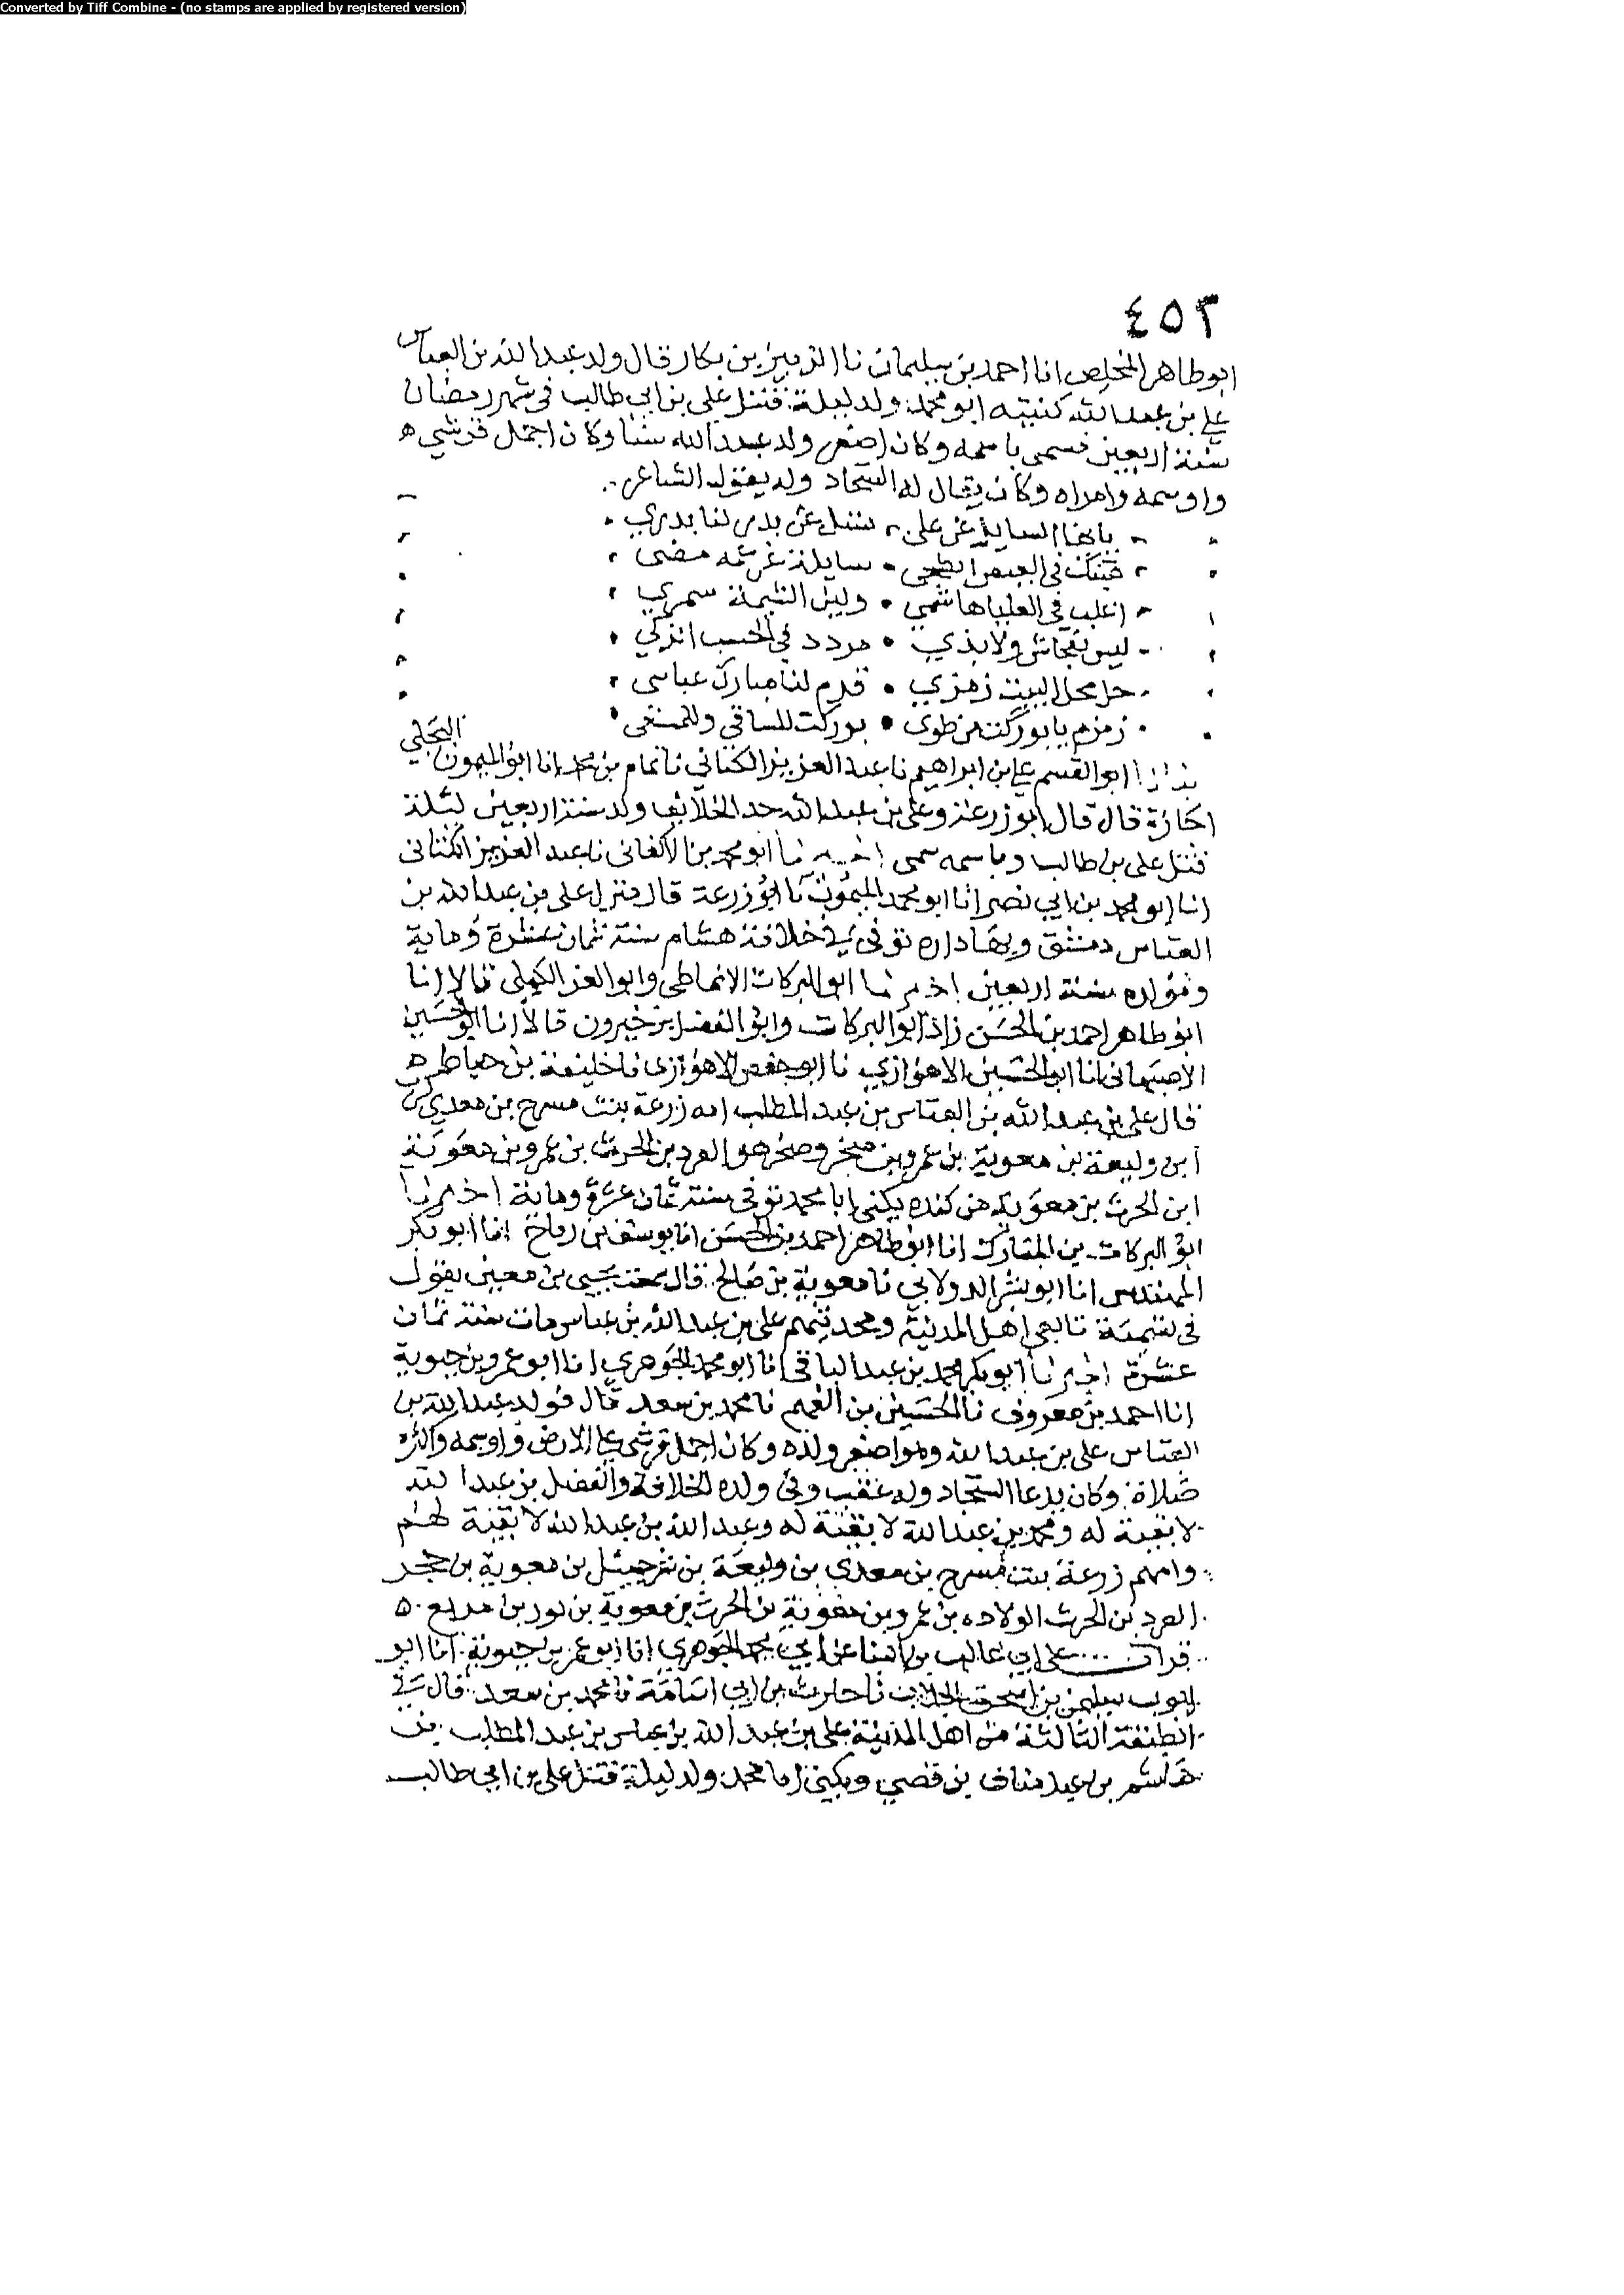 Converted by Tiff Combine - (no stamps are applied by registered version)
٤٥٢
ابو طاهر المخلص انا احمد بن سليمان نا الزبير بن بكار قال ولد عبد الله بن العباس
علي بن عبد الله كنيته ابو محمد ولد ليلة قتل علي بن ابي طالب في شهر رمضان
سنة اربعين فسمى باسمه وكان اصغر ولد عبد الله سنا وكان اجمل قرشي
واوسمه وامراه وكان يقال له السجاد وله يقول الشاعر
يا ايها السايل عن علي سل عن بدر لنا بدري
في العيص ابطحي سايلة غرته مضى
اغلب في العليا هاشمي ولين الشيمة سمري
ليس بفحاش ولا بذي مردد في الحسب الزكي
حل محل البيت زمزمي قرم لنا مبارك عباسي
زمزم يا بوركت من طوي بوركت للساقي وللمستقي
ابو القسم علي بن ابراهيم نا عبد العزيز الكتاني نا تمام بن محمد انا ابو الميمون البجلي
اجازة قال قال ابو زرعة وعلي بن عبد الله جد الخلايف ولد سنة اربعين ليلة
قتل علي بن طالب وباسمه سمى اخبرنا ابو محمد بن الاكفاني نا عبد العزيز الكتاني
انا ابو محمد بن ابي نصر انا ابو محمد الميمون نا ابو زرعة قال منزل علي بن عبد الله بن
العباس دمشق وبها داره توفي في خلافة هشام سنة ثمان عشرة وماية
ومولده سنة اربعين اخبرنا ابو البركات الانماطي وابو العز الكيلي قالا انا
ابو طاهر احمد بن الحسن زاد ابو البركات وابو الفضل بن خيرون قالا انا ابو الحسين
الاصبهاني انا ابو الحسين الاهوازي نا ابو حفص الاهوازي نا خليفة بن خياط
قال علي بن عبد الله بن العباس بن عبد المطلب امه زرعة بنت مسرح بن معدي كرب
ابن وليعة بن معوية بن عمرو بن صخر وصخر هو العرد بن الحرث بن عمرو بن معوية
ابن الحرث بن معوية من كنده يكنى ابا محمد توفي سنة ثمان عشرة وماية اخبرنا
ابو البركات بن المبارك انا ابو طاهر احمد بن الحسن انا يوسف بن رباح انا ابو بكر
المهندس انا ابو بشر الدولابي نا معوية بن صالح قال سمعت يحيى بن معين يقول
في تسمية تابعي اهل المدينة ومحدثيهم علي بن عبد الله بن عباس مات سنة ثمان
عشرة اخبرنا ابو بكر محمد بن عبد الباقي انا ابو محمد الجوهري انا ابو عمرو بن حيوية
انا احمد بن معروف نا الحسين بن الفهم نا محمد بن سعد قال فولد عبد الله بن
العباس علي بن عبد الله وهو اصغر ولده وكان اجمل قرشي على الارض واوسمه واكثره
صلاة وكان يدعا السجاد وله عقب وفي ولده الخلافة والفضل بن عبد الله
لا بقية له ومحمد بن عبد الله لا بقية له وعبد الله بن عبد الله لا بقية لهم
وامهم زرعة بنت مسرح بن معدي بن وليعة بن شرحبيل بن معوية بن حجر
العرد بن الحرث الولاده بن عمرو بن معوية بن الحرث بن معوية بن ثور بن مريع
قرات على ابي غالب بن البنا عن ابي محمد الجوهري انا ابو عمر بن حيوية انا ابو
ايوب سليمن بن اسحق الجلاب نا حارث بن ابي اسامة نا محمد بن سعد قال في
الطبقة الثالثة من اهل المدينة علي بن عبد الله بن عباس بن عبد المطلب بن
هاشم بن عبد مناف بن قصي ويكنى ابا محمد ولد ليلة قتل علي بن ابي طالب